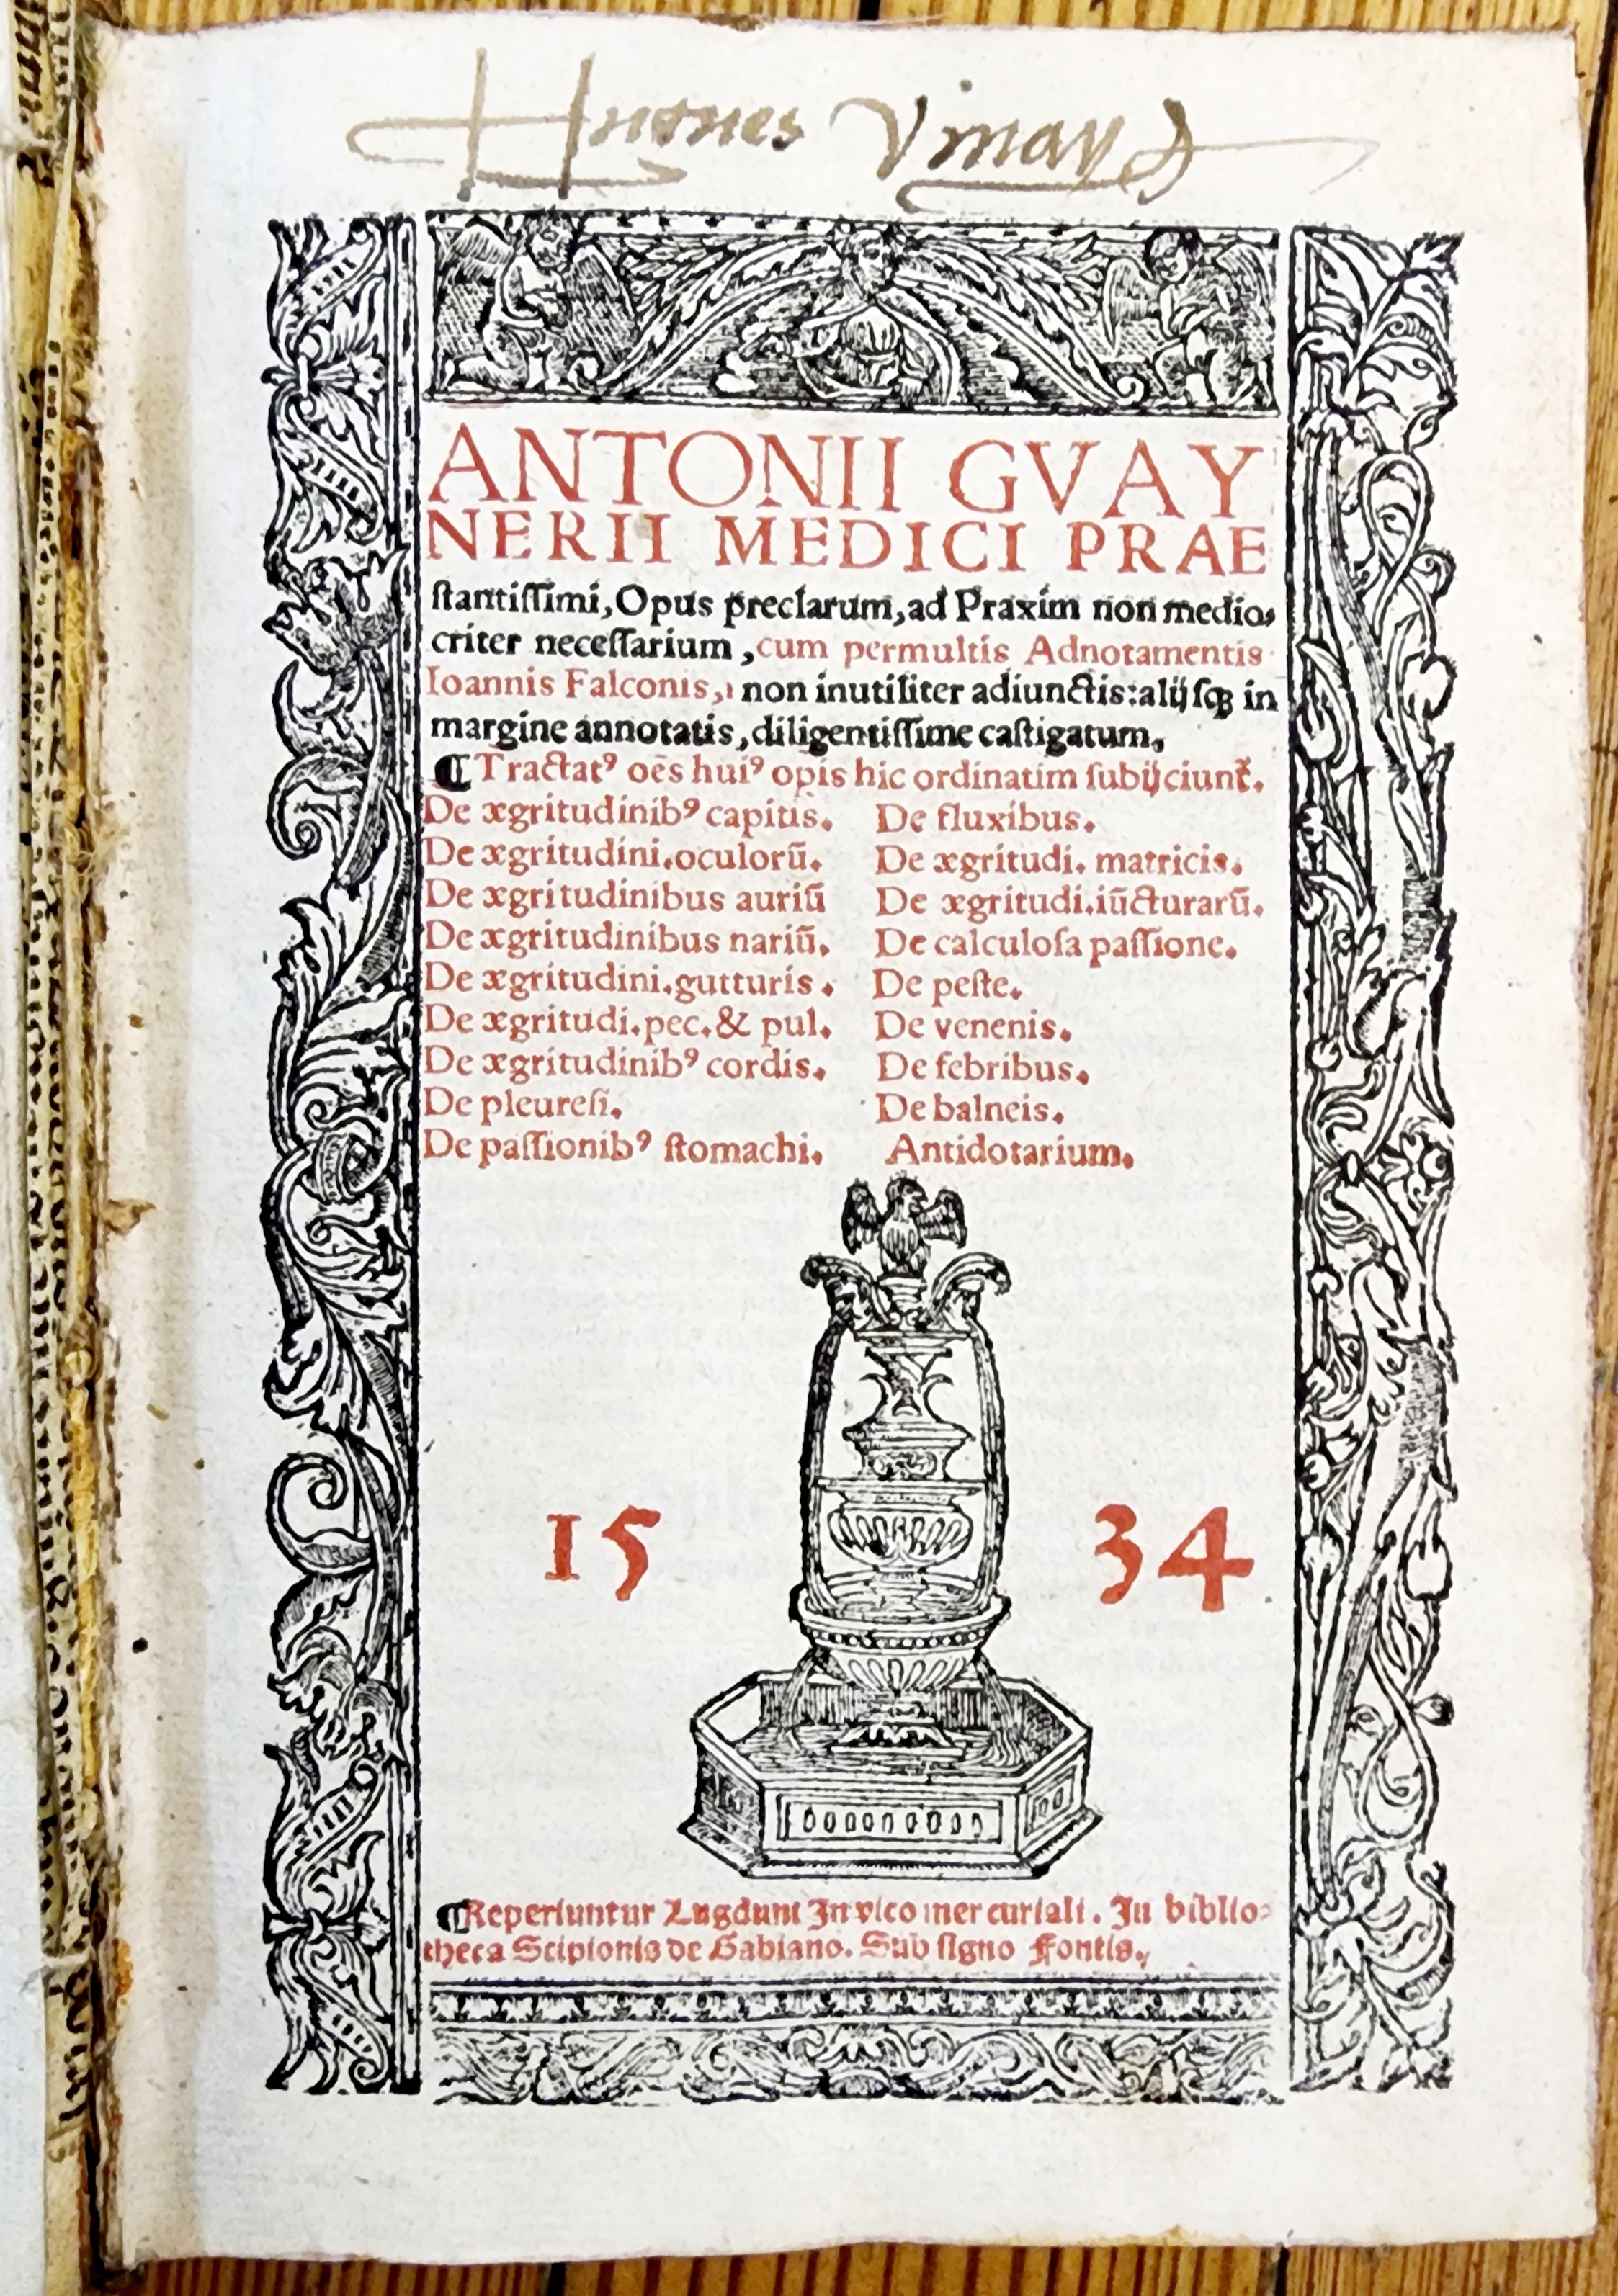 Vmay
ANTONII GVAY
NERII MEDICI PRAE
ſtantiſſimi, Opus preclarum, ad Praxim non medio⸗
criter neceſſarium, cum permultis Adnotamentis
Ioannis Falconis, non inutiliter adiunctis: alijſqꝫ in
margine annotatis, diligentiſſime caſtigatum.
¶ Tractatꝰ oēs huiꝰ opis hic ordinatim ſubijciunt᷑.
De ægritudinibꝰ capitis. De fluxibus.
De ægritudini. oculorū. De ægritudi. matricis.
De ægritudinibus auriū De ægritudi. iūcturarū.
De ægritudinibus nariū. De calculoſa paſſione.
De ægritudini. gutturis. De peſte.
De ægritudi. pec. & pul. De venenis.
De ægritudinibꝰ cordis. De febribus.
De pleureſi. De balneis.
De paſſionibꝰ ſtomachi. Antidotarium.
15 34
¶ Reperiuntur Lugduni In vico mercuriali. In biblio⸗
theca Scipionis de Gabiano. Sub ſigno Fontis.